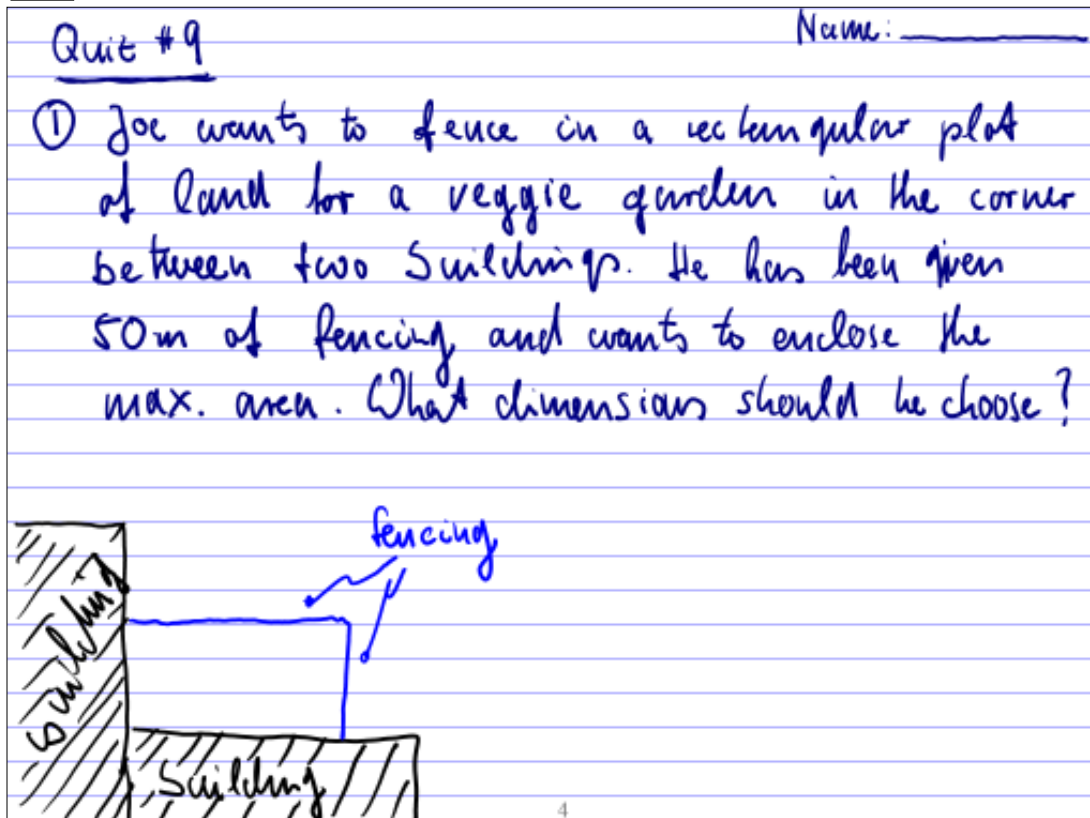 Name:
Quiz #9
① Joe wants to fence in a rectangular plot
of land for a veggie garden in the corner
between two buildings. He has been given
50m of fencing and wants to enclose the
max. area. What dimensions should he choose?
fencing
building
building
4